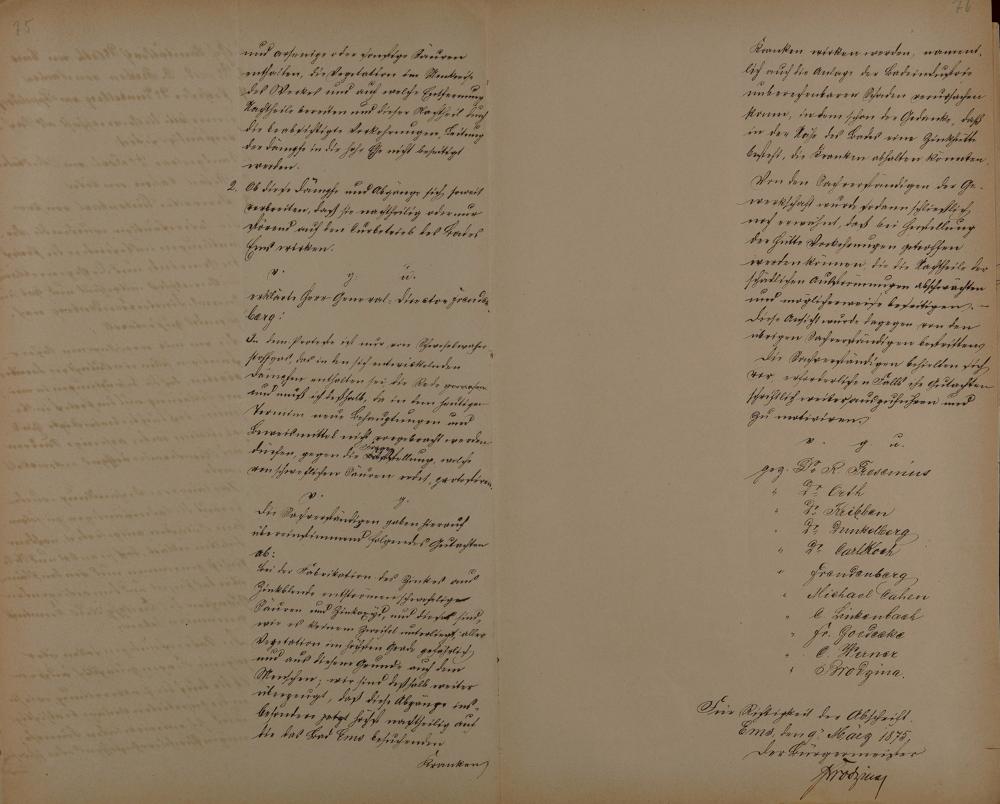 75
und arsenige oder sonstige Säuren
enthalten, die Vegetation im Umkreise
des Werkes und auf welche Entfernung
Nachtheile bereiten und dieser Nachtheil durch
die beabsichtigte Vorkehrungen, Leitung
der Dämpfe in die hohe Esse nicht beseitigt
werden.
2. Ob diese Dämpfe und Abgänge sich soweit
verbreiten, daß sie nachtheilig oder nur
störend auf den Curbetrieb des Bades
Ems wirken.
v. g. u.
erklärte Herr General-Director Freuden
berg:
In dem Proteste ist nur von Schwefelwasser-
stoffgas, das in den sich entwickelnden
Dämpfen enthalten sei die Rede gewesen
und muß ich deßhalb, da in dem heutigen
Termin neue Behauptungen und
Beweismittel nicht vorgebracht werden
dürfen, gegen die Fragestellung, welche
von schweflichen Säuren redet, protestiren.
v. g.
Die Sachverständigen gaben hierauf
übereinstimmend folgendes Gutachten
ab:
Bei der Fabrikation des Zinkes aus
Zinkblende entströmen schwefelige
Säuren und Zinkoxyd, und diese sind,
wie es keinem Zweifel unterliegt, aller
Vegetation im höchsten Grade gefährlich,
und aus diesem Grunde auch dem
Menschen; wir sind deßhalb weiter
überzeugt, daß diese Abgänge ins-
besondere höchst nachtheilig auf
die das Bad Ems besuchenden
Kranken
76
Kranken wirken werden, nament-
lich auch die Anlage der Badeindustrie
unberechenbaren Schaden verursachen
kann, indem schon der Gedanke, daß
in der Nähe des Bades eine Zinkhütte
besteht, die Kranken abhalten könnten.
Von den Sachverständigen der Ge-
werkschaft wurde sodann schließlich
noch erwähnt, daß bei Herstellung
der Hütte Vorkehrungen getroffen
werden können, die die Nachtheile der
schädlichen Ausströmungen abschwächten
und möglicherweise beseitigen. –
Diese Ansicht wurde dagegen von den
übrigen Sachverständigen bestritten.
Die Sachverständigen behielten sich
vor, erforderlichen Falls ihr Gutachten
schriftlich weiter auszuführen und
zu motiviren.
v. g. u.
gez. Dr R. Fresenius
" Dr Orth
" Dr Kribben
" Dr Dunkelberg
" Dr Carl Koch
" Freudenberg
" Michael Cahen
" C. Linkenbach
" Fr. Goedecke
" C. Werner
" Brodzina.
Für Richtigkeit der Abschrift.
Ems, den 9. März 1875,
Der Bürgermeister
Brodzina